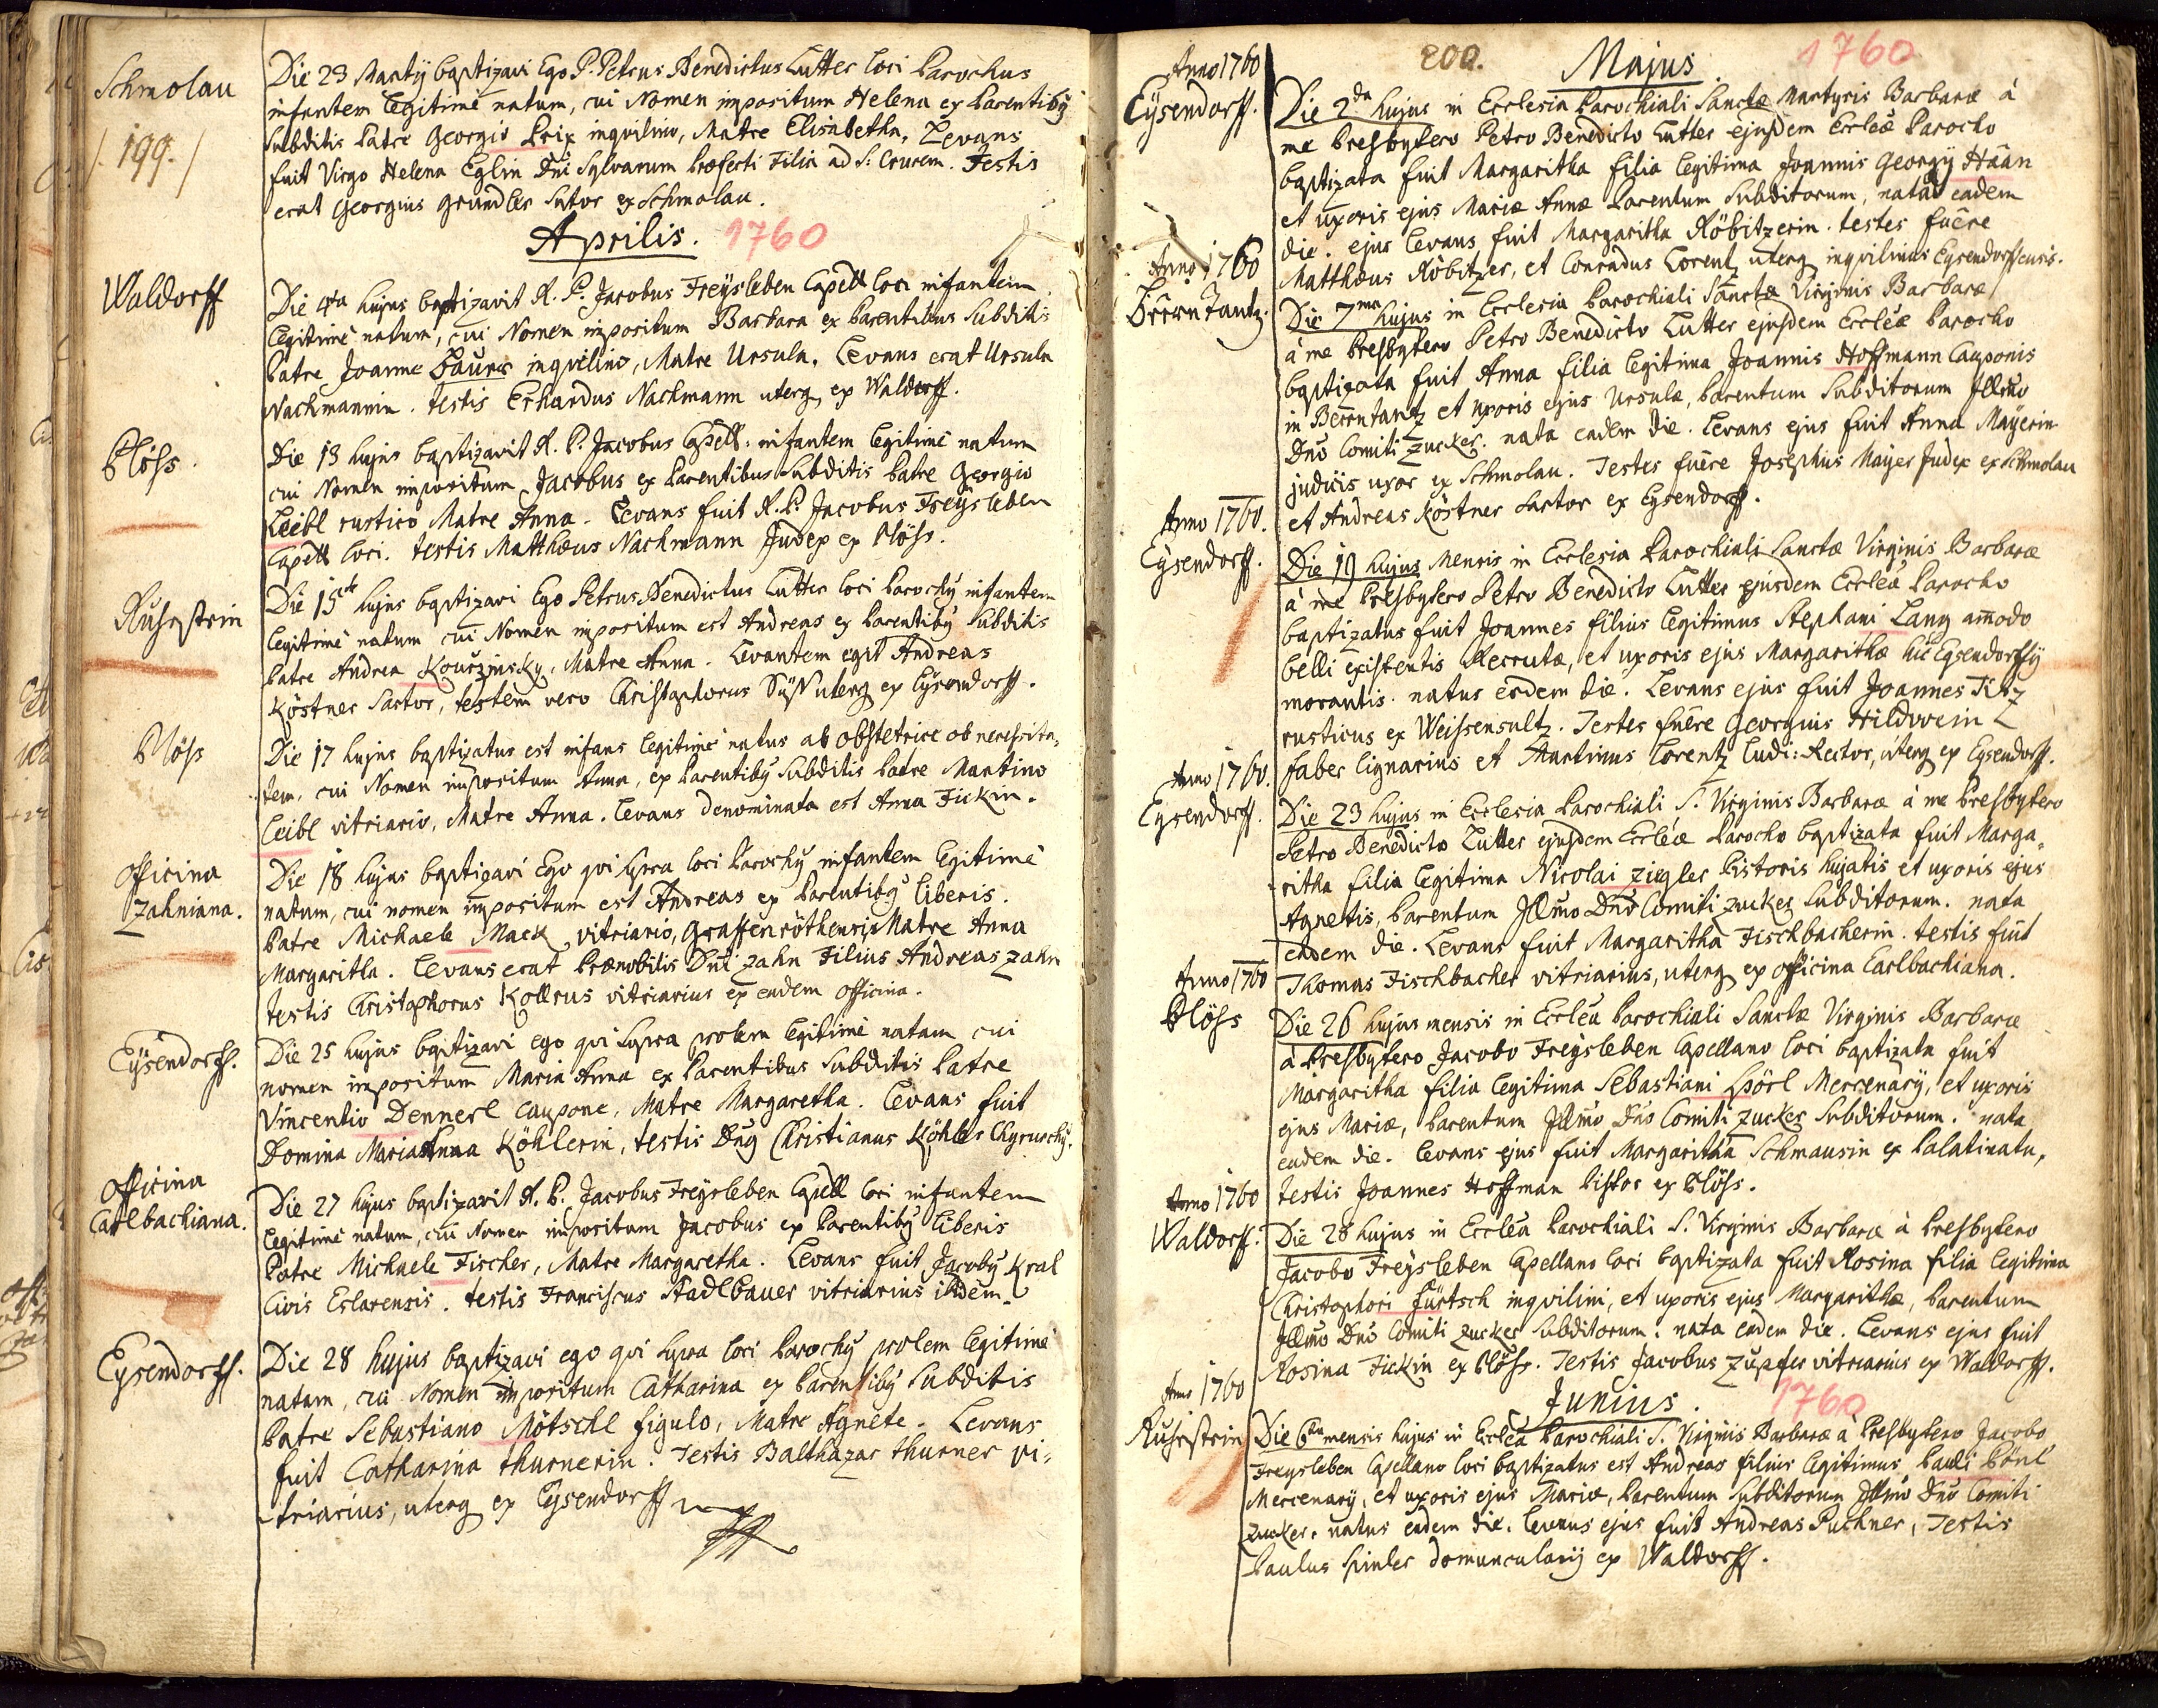 Schmolau
/. 199. /
Die 23 Martÿ baptizavi Ego P. Petrus Benedictus Lutter loci Parochus
infantem legitimè natum, cui Nomen impositum Helena ex Parentibꝰ
Subditis Patre Georgio Prix inqvilino, Matre Elisabetha. Levans
fuit Virgo Helena Eglin Dni Sylvarum Præfecti Filia ad S. Crucem. Testis
erat Georgius Grundler Sutor ex Schmolau.
Aprilis. 1760
Waldorff
Die 4ta hujus baptizavit R. P. Jacobus Freÿsleben Capell loci infantem
legitimè natum, cui Nomen impositum Barbara ex Parentibus Subditis
Patre Joanne Baurer inqvilino, Matre Ursula. Levans erat Ursula
Nachmannin. testis Erhardus Nachmann uterq ex Waldorff.
Plöss.
Die 13 hujus baptizavit R. P. Jacobus Capell: infantem legitimè natum
cui Nomen impositum Jacobus ex Parentibus Subditis Patre Georgio
Leibl rustico Matre Anna. Levans fuit R. P. Jacobus Freÿsleben
Capell loci. testis Matthæus Nachmann Judex ex Plöss.
Ruhrstein
Die 15 hujus baptizavi Ego Petrus Benedictus Lutter loci Parochꝰ infantem
legitimè natum cui Nomen impositum est Andreas ex Parentibꝰ Subditis
Patre Andrea Kourzinsky, Matre Anna. Levantem egit Andreas
Köstner Sartor, testem vero Christophorus Süss uterq ex Eÿsendorff.
Plöss
Die 17 hujus baptizatus est infans legitimè natus ab obstetrice ob necessita-
tem, cui Nomen impositum Anna, ex Parentibꝰ Subditis Patre Martino
Leibl vitriario, Matre Anna. Levans denominata est Anna Fickin.
Officina
Zahniana.
Die 18 hujus baptizavi Ego qvi supra loci Parochꝰ infantem legitimè
natum, cui nomen impositum est Andreas ex Parentibꝰ liberis.
Patre Michaele Mack vitriario, Graffenröthensis Matre Anna
Margaritha. Levans erat Prænobilis Dni Zahn Filius Andreas Zahn
testis Christophorus Kollrus vitriarius ex eadem officina.
Eÿsendorff.
Die 25 hujus baptizavi ego qvi supra prolem legitimè natam cui
nomen impositum Maria Anna ex Parentibus Subditis Patre
Vincentio Dennerl caupone, Matre Margaretha. Levans fuit
Domina Maria Anna Köhlerin, testis Dnꝰ Christianus Köhler Chyrurchꝰ.
Officina
Carlbachiana.
Die 27 hujus baptizavit R. P. Jacobus Freÿsleben Capell loci infantem
legitimè natum, cui Nomen impositum Jacobus ex Parentibꝰ liberis
Patre Michaele Fischer, Matre Margaretha. Levans fuit Jacobꝰ Kral
Civis Eslarensis. testis Franciscus Stadlbauer vitriarius ibidem.
Eysendorff.
Die 28 hujus baptizavi ego qvi supra loci Parochꝰ prolem legitimè
natam, cui Nomen impositum Catharina ex Parentibꝰ Subditis
Patre Sebastiano Mötschl figulo, Matre Agnete. Levans
fuit Catharina thurnerin. Testis Balthazar thurner vi-
triarius, uterq ex Eysendorff
200. Majus 1760
Anno 1760
Eÿsendorff.
Die 2da hujus in Ecclesia Parochiali Sanctæ Martyris Barbaræ à
me Presbytero Petro Benedicto Lutter ejusdem Eccleæ Parocho
baptizata fuit Margaritha filia legitima Joannis Georgÿ Häan
et uxoris ejus Mariæ Annæ Parentum Subditorum, nata eadem
die. ejus levans fuit Margaritha Röbitzerin. testes fuêre
Matthæus Röbitzer, et Conradus Lorentz uterq inqvilinus Eysendorffensis.
Anno 1760
Beerntantz.
Die 7ma hujus in Ecclesia Parochiali Sanctæ Virginis Barbaræ
à me Presbytero Petro Benedicto Lutter ejusdem Eccleæ Parocho
baptizata fuit Anna filia legitima Joannis Hoffmann Cauponis
in Beerntantz et uxoris ejus Ursulæ, Parentum Subditorum Illmo
Dno Comiti Zucker. nata eadem die. Levans ejus fuit Anna Mayerin
judicis uxor ex Schmolau. Testes fuêre Josephus Mayer Judex ex Schmolau
et Andreas Köstner Sartor ex Eysendorff.
Anno 1760.
Eÿsendorff.
Die 19 hujus Mensis in Ecclesia Parochiali Sanctæ Virginis Barbaræ
à me Presbytero Petro Benedicto Lutter ejusdem Eccleæ Parocho
baptizatus fuit Joannes filius legitimus Stephani Lang amodo
belli existentis Recrutæ, et uxoris ejus Margarithæ hic Eysendorffÿ
morantis. natus eadem die. Levans ejus fuit Joannes Titz
rusticus ex Weissensultz. Testes fuêre Georgius Hildwein
faber lignarius et Martinus Lorentz ludi: Rector, uterq ex Eysendorff.
Anno 1760.
Eysendorff.
Die 23 hujus in Ecclesia Parochiali S. Virginis Barbaræ à me Presbytero
Petro Benedicto Lutter ejusdem Eccleæ Parocho baptizata fuit Marga-
ritha filia legitima Nicolai Ziegler Pistoris hujatis et uxoris ejus
Agnetis, Parentum Illmo Dno Comiti Zucker Subditorum. nata
eadem die. Levans fuit Margaritha Fischbacherin. testis fuit
Thomas Fischbacher vitriarius, uterq ex officina Carlbachiana.
Anno 1760
Plöss
Die 26 hujus mensis in Ecclea Parochiali Sanctæ Virginis Barbaræ
à Presbytero Jacobo Freÿsleben Capellano loci baptizata fuit
Margaritha filia legitima Sebastiani Spörl Mercenarÿ, et uxoris
ejus Mariæ, Parentum Illmo Dno Comiti Zucker Subditorum. nata
eadem die. Levans ejus fuit Margaritha Schmausin ex Palatinatu,
testis Joannes Hoffman Pistor ex Plöss.
Anno 1760
Waldorff.
Die 28 hujus in Ecclea Parochiali S. Virginis Barbaræ à Presbytero
Jacobo Freÿsleben Capellano loci baptizata fuit Rosina filia legitima
Christophori Fürtsch inqvilini, et uxoris ejus Margarithæ, Parentum
Illmo Dno Comiti Zucker Subditorum. nata eadem die. Levans ejus fuit
Rosina Fickin ex Plöss. Testis Jacobus Zupfer vitriarius ex Waldorff.
Junius. 1760
Anno 1760
Ruhrstein
Die 6ta mensis hujus in Ecclea Parochiali S. Virginis Barbaræ à Presbytero Jacobo
Freysleben Capellano loci baptizatus est Andreas filius legitimus Pauli Pönl
Mercenarÿ, et uxoris ejus Mariæ, Parentum Subditorum Illmo Dno Comiti
Zucker. natus eadem die. levans ejus fuit Andreas Puchner, Testis
Paulus Spinler domuncularÿ ex Waldorff.